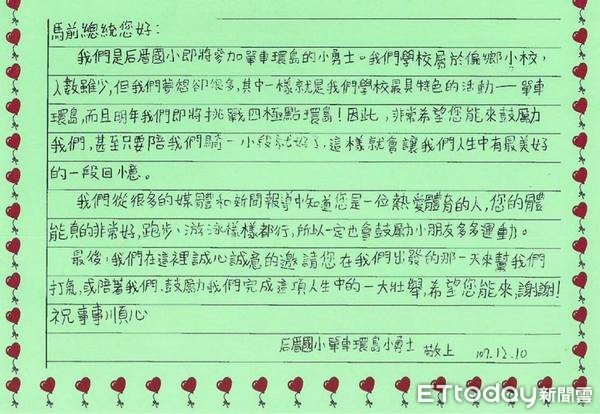 馬前總統您好：
我們是后厝國小即將參加單車環島的小勇士。我們學校屬於偏鄉小校，
人數雖少，但我們夢想卻很多，其中一樣就是我們學校最具特色的活動——單車
環島，而且明年我們即將挑戰四極點環島！因此，非常希望您能來鼓勵
我們，甚至只要陪我們騎一小段就好了，這樣就會讓我們人生中有最美好
的一段回憶。
我們從很多的媒體和新聞報導中知道您是一位熱愛體育的人，您的體
能真的非常好，跑步、游泳樣樣都行，所以一定也會鼓勵小朋友多多運動。
最後，我們在這裡誠心誠意的邀請您在我們出發的那一天來幫我們
打氣，或陪著我們、鼓勵我們完成這項人生中的一大壯舉，希望您能來，謝謝！
祝事事順心
后厝國小單車環島小勇士 敬上 107.12.10
ETtoday新聞雲